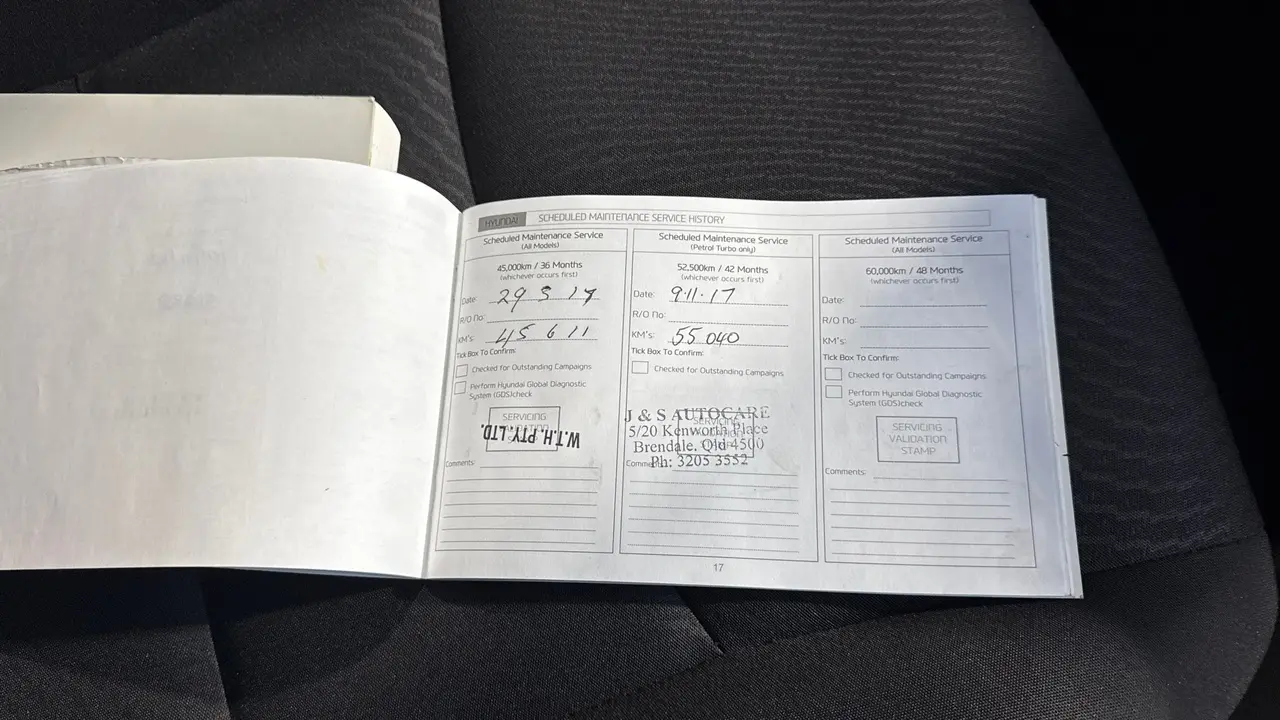 HYUNDAI SCHEDULED MAINTENANCE SERVICE HISTORY
Scheduled Maintenance Service
(All Models)
45,000km / 36 Months
(whichever occurs first)
Date: 29 5 17
R/O No:
KM's: 45 6 11
Tick Box To Confirm:
Checked for Outstanding Campaigns
Perform Hyundai Global Diagnostic
System (GDS)check
SERVICING
VALIDATION
STAMP
W.T.H. PTY. LTD.
Comments:
Scheduled Maintenance Service
(Petrol Turbo only)
52,500km / 42 Months
(whichever occurs first)
Date: 9.11.17
R/O No:
KM's: 55 040
Tick Box To Confirm:
Checked for Outstanding Campaigns
SERVICING
J & S AUTOCARE
5/20 Kenworth Place
Brendale. Qld 4500
Ph: 3205 3552
Comments:
Scheduled Maintenance Service
(All Models)
60,000km / 48 Months
(whichever occurs first)
Date:
R/O No:
KM's:
Tick Box To Confirm:
Checked for Outstanding Campaigns
Perform Hyundai Global Diagnostic
System (GDS)check
SERVICING
VALIDATION
STAMP
Comments:
17